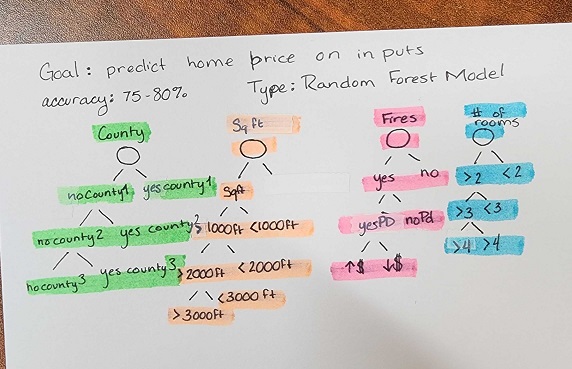 Goal: predict home price on inputs
accuracy: 75-80%
Type: Random Forest Model
County
no county1 yes county1
no county2 yes county2
no county3 yes county3
Sqft
Sqft
>1000ft <1000ft
>2000ft <2000ft
<3000ft
>3000ft
Fires
yes no
yesPD noPd
↑$ ↓$
# of
rooms
>2 <2
>3 <3
>4 >4